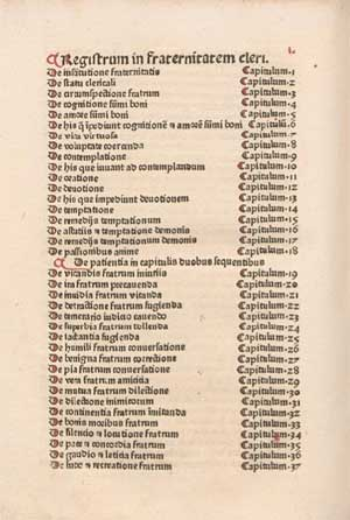 Registrum in fraternitatem cleri.
De institutione fraternitatis Capitulum·1
De statu clericali Capitulum·2
De circumspectione fratrum Capitulum·3
De cognitione sūmi boni Capitulum·4
De amore sūmi boni Capitulum·5
De his q̄ īpediunt cognitionē ⁊ amorē sūmi boni Capitulū·6
De vita virtuosa Capitulum·7
De voluptate coercenda Capitulum·8
De contemplatione Capitulum·9
De his que iuuant ad contemplandum Capitulum·10
De oratione Capitulum·11
De deuotione Capitulum·12
De his que impediunt deuotionem Capitulum·13
De temptatione Capitulum·14
De remedijs temptationum Capitulum·15
De astutijs ⁊ temptatione demonis Capitulum·16
De remedijs temptationum demonis Capitulum·17
De passionibus anime Capitulum·18
De patientia in capitulis duobus sequentibus
De vitandis fratrum iniurijs Capitulum·19
De ira fratrum precauenda Capitulum·20
De inuidia fratrum vitanda Capitulum·21
De detractione fratrum fugienda Capitulum·22
De temerario iudicio cauendo Capitulum·23
De superbia fratrum tollenda Capitulum·24
De iactantia fugienda Capitulum·25
De humili fratrum conuersatione Capitulum·26
De benigna fratrum correctione Capitulum·27
De pia fratrum conuersatione Capitulum·28
De vera fratrum amicitia Capitulum·29
De mutua fratrum dilectione Capitulum·30
De dilectione inimicorum Capitulum·31
De continentia fratrum imitanda Capitulum·32
De bonis moribus fratrum Capitulum·33
De silencio ⁊ locutione fratrum Capitulum·34
De pace ⁊ concordia fratrum Capitulum·35
De gaudio ⁊ leticia fratrum Capitulum·36
De ludo ⁊ recreatione fratrum Capitulum·37